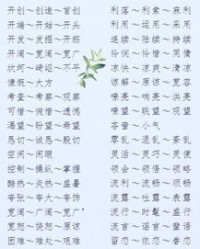 开创~创造~首创
开端~开始~开头
开发~发掘~开拓
开阔~宽阔~宽广
坎坷~崎岖~不平
慷慨~大方
考查~考察~观察
可惜~惋惜~遗憾
渴望~盼望~希望
恳切~诚恳~殷切
空闲~闲暇
控制~操纵~掌握
酷热~炎热~盛暑
夸张~
宽阔~广阔~宽广
宽恕~饶恕~原谅
困难~难处~艰难
利落~利索~麻利
利用~运用~采用
连续~陆续~持续
凉快~凉爽~清凉
谅解~原谅~宽容
嘹亮~响亮~洪亮
瞭望~眺望~观望
吝啬~小气
零乱~混乱~紊乱
灵活~灵巧~灵便
领会~领悟~领略
流利~流畅~顺畅
流露~吐露~表露
流行~时髦~盛行
流言~谣言~蜚语
留恋~依恋~眷恋